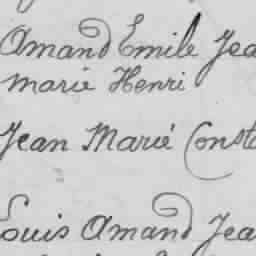 Amand Emile Jea
Marie Henri
Jean Marie Const
Louis Amand Jea